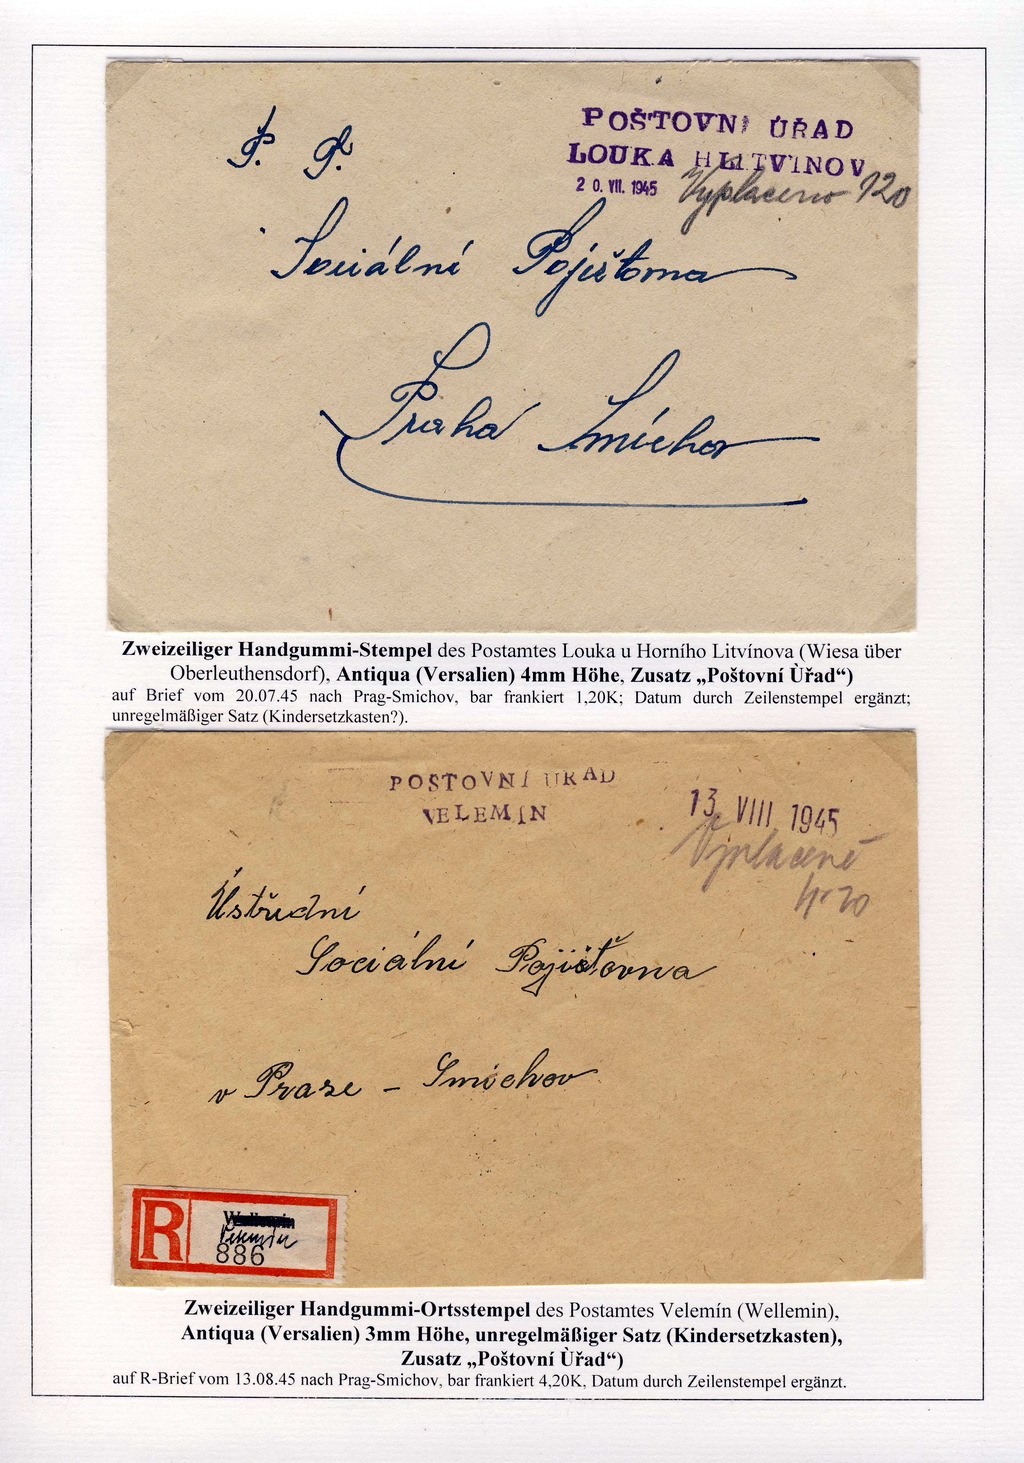 P. P.
POŠTOVNÍ ÚŘAD
LOUKA H LITVÍNOV
20. VII. 1945 Vyplaceno 120
Sociální Pojišťovna
Praha Smíchov
Zweizeiliger Handgummi-Stempel des Postamtes Louka u Horního Litvínova (Wiesa über
Oberleuthensdorf), Antiqua (Versalien) 4mm Höhe, Zusatz „Poštovní Ùřad“)
auf Brief vom 20.07.45 nach Prag-Smichov, bar frankiert 1,20K; Datum durch Zeilenstempel ergänzt;
unregelmäßiger Satz (Kindersetzkasten?).
POSTOVNÍ URAD
VELEMIN
13 VIII 1945
Vyplaceně
4·20
Ústřední
Sociální Pojišťovna
v Praze – Smíchov
R
Wellemin
Velemín
886
Zweizeiliger Handgummi-Ortsstempel des Postamtes Velemín (Wellemin),
Antiqua (Versalien) 3mm Höhe, unregelmäßiger Satz (Kindersetzkasten),
Zusatz „Poštovní Ùřad“)
auf R-Brief vom 13.08.45 nach Prag-Smichov, bar frankiert 4,20K, Datum durch Zeilenstempel ergänzt.